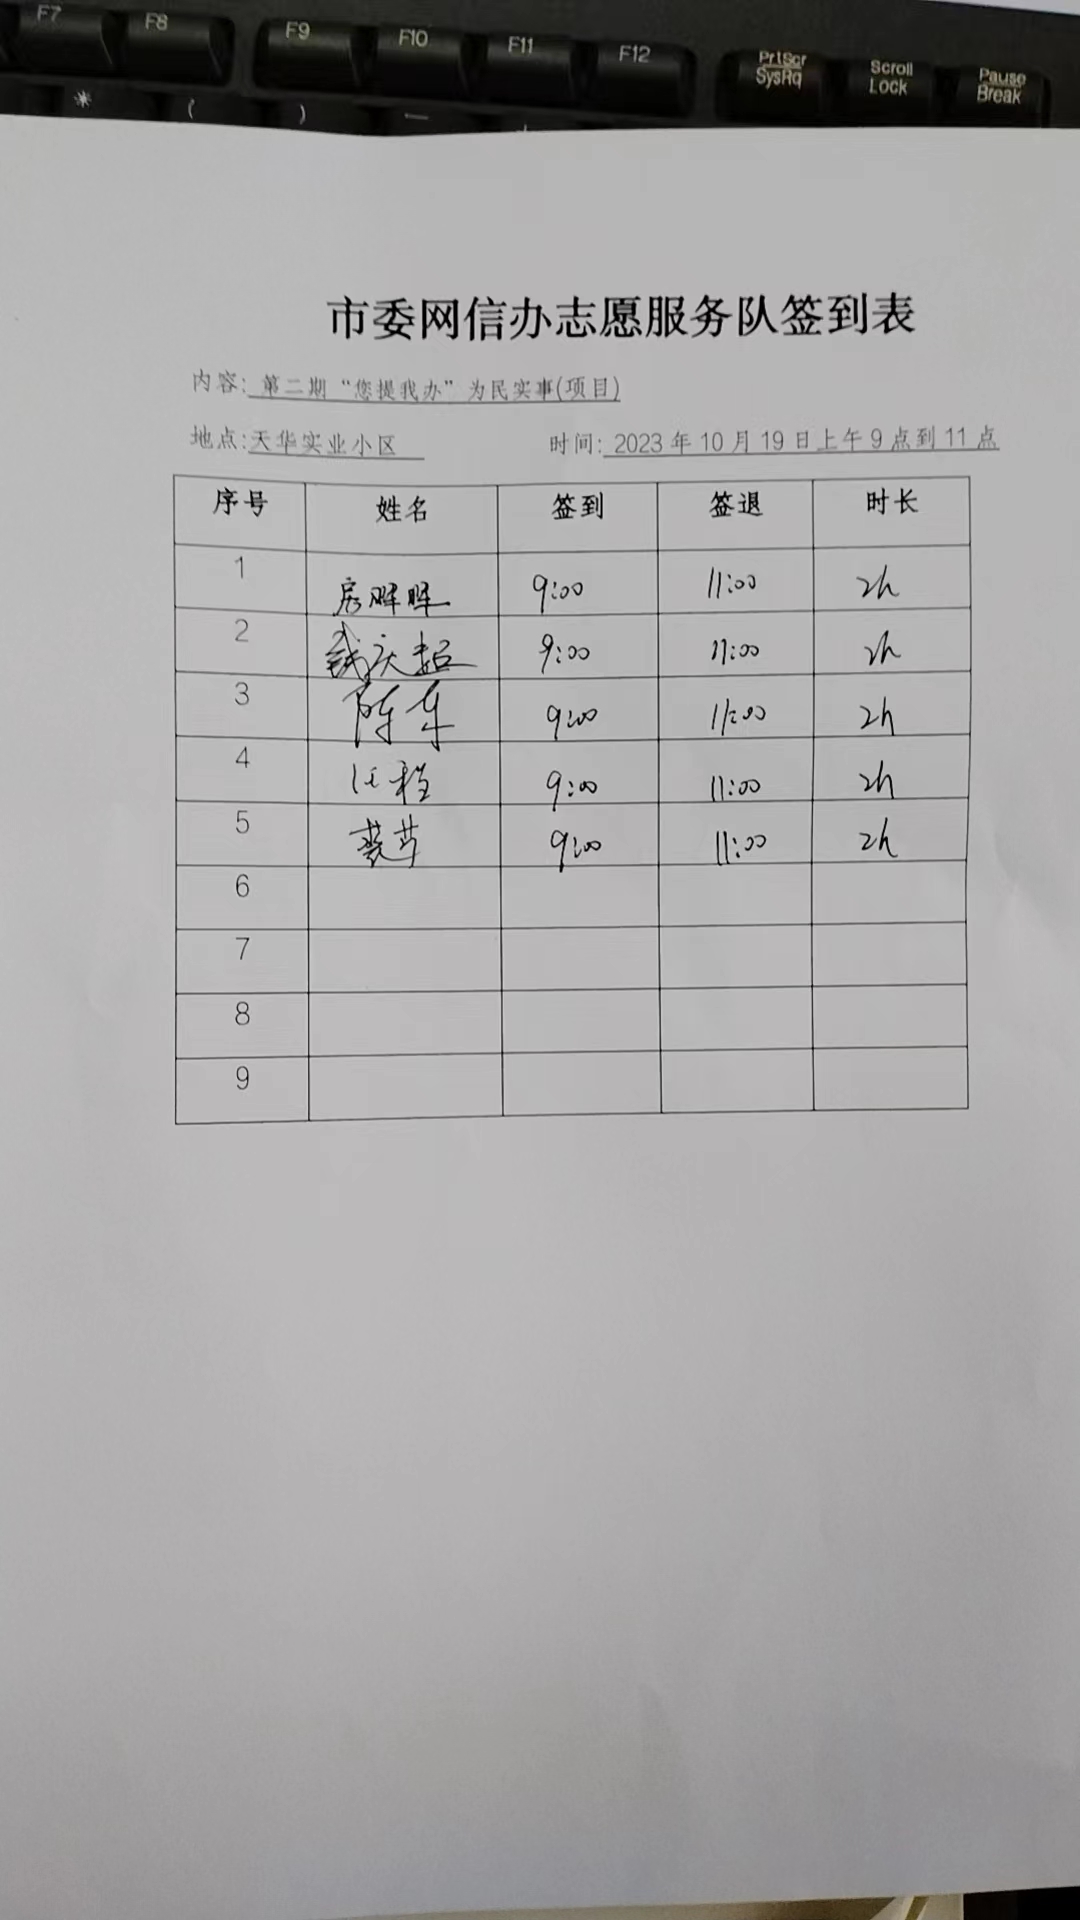 F7 F8 F9 F10 F11 F12 PrtScr SysRq Scroll Lock Pause Break
* ( ) —
市委网信办志愿服务队签到表
内容: 第二期“您提我办”为民实事(项目)
地点:天华实业小区 时间: 2023年10月19日上午9点到11点
序号 姓名 签到 签退 时长
1 房晖晖 9:00 11:00 2h
2 钱庆超 9:00 11:00 2h
3 陈车 9:00 11:00 2h
4 9:00 11:00 2h
5 9:00 11:00 2h
6
7
8
9